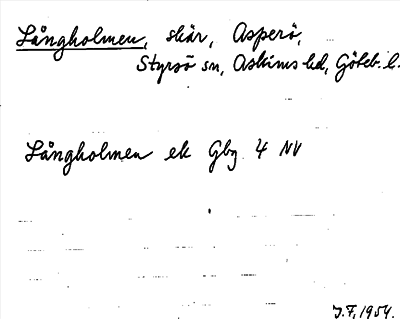 Långholmen, skär, Asperö,
Styrsö sn, Askims hd, Göteb. l.
Långholmen ek Gbg 4 NV
J.F, 1954.